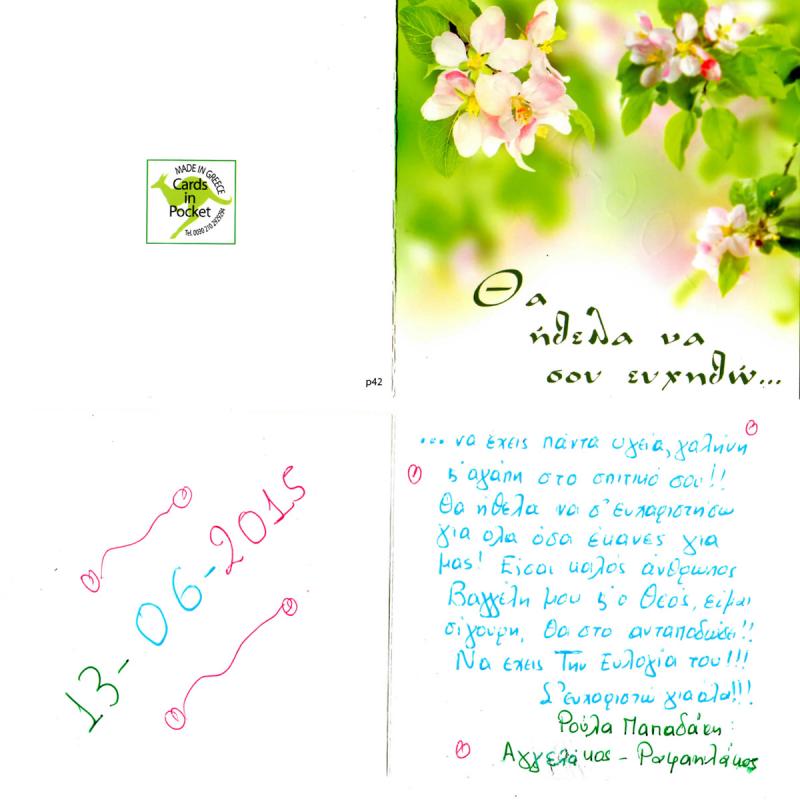 MADE IN GREECE
Cards
in
Pocket
Tel. 0030 210 2929094
p42
Θα
ήθελα να
σου ευχηθώ...
13-06-2015
... να έχεις πάντα υγεία, γαλήνη
ϗ αγάπη στο σπιτικό σου!!
Θα ήθελα να σ' ευχαριστήσω
για όλα όσα έκανες για
μας! Είσαι καλός άνθρωπος
Βαγγέλη μου ϗ ο Θεός, είμαι
σίγουρη, θα στο ανταποδώσει!!
Να έχεις Την Ευλογία του!!!
Σ' ευχαριστώ για όλα!!!
Ρούλα Παπαδάκη
Αγγελάκος - Ραφαηλάκος